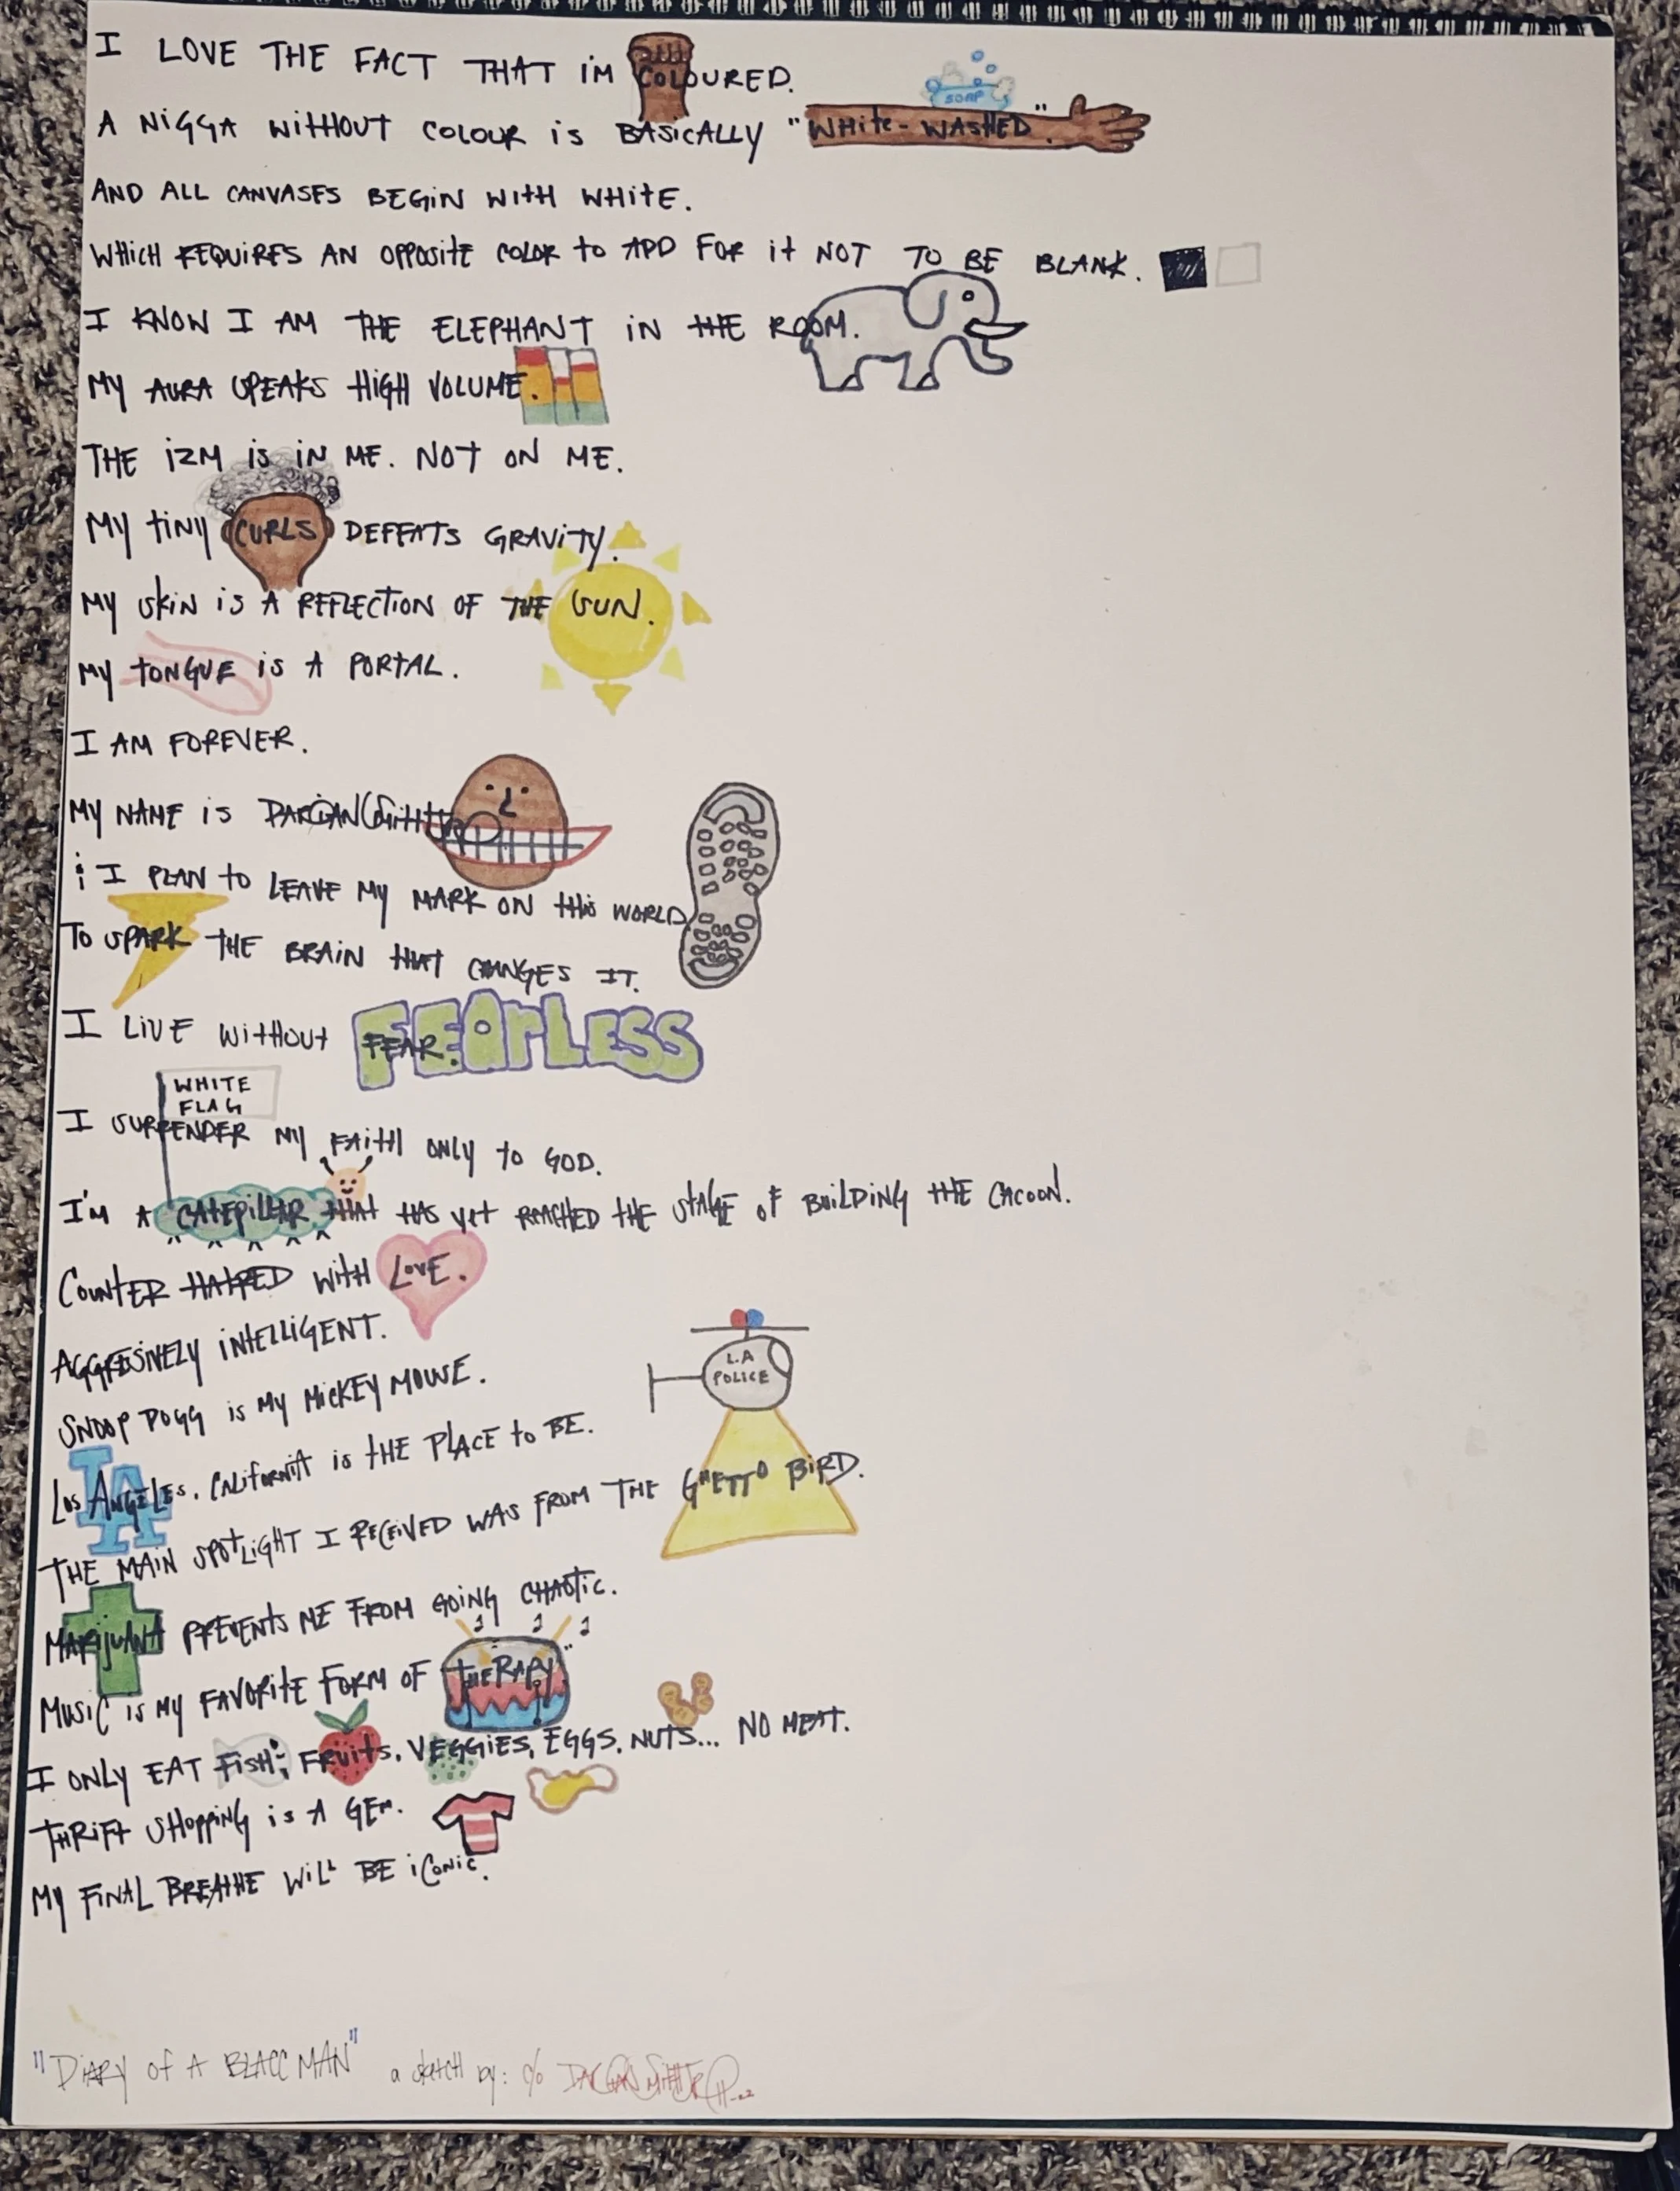 I LOVE THE FACT THAT I'M COLOURED.
SOAP
A NIGGA WITHOUT COLOUR IS BASICALLY "WHITE-WASHED".
AND ALL CANVASES BEGIN WITH WHITE.
WHICH REQUIRES AN OPPOSITE COLOR TO ADD FOR IT NOT TO BE BLANK.
I KNOW I AM THE ELEPHANT IN THE ROOM.
MY AURA SPEAKS HIGH VOLUME.
THE IZM IS IN ME. NOT ON ME.
MY TINY CURLS DEFEATS GRAVITY.
MY SKIN IS A REFLECTION OF THE SUN.
MY TONGUE IS A PORTAL.
I AM FOREVER.
MY NAME IS
I PLAN TO LEAVE MY MARK ON THIS WORLD
TO SPARK THE BRAIN THAT CHANGES IT.
I LIVE WITHOUT FEAR. FEARLESS
WHITE
FLAG
I SURRENDER MY FAITH ONLY TO GOD.
I'M A CATEPILLAR THAT HAS YET REACHED THE STAGE OF BUILDING THE CACOON.
COUNTER HATRED WITH LOVE.
AGGRESIVELY INTELLIGENT.
SNOOP DOGG IS MY MICKEY MOUSE.
L.A
POLICE
LOS ANGELES, CALIFORNIA IS THE PLACE TO BE.
LA
THE MAIN SPOTLIGHT I RECEIVED WAS FROM THE GHETTO BIRD.
MARIJUANA PREVENTS ME FROM GOING CHAOTIC.
MUSIC IS MY FAVORITE FORM OF THERAPY
I ONLY EAT FISH, FRUITS, VEGGIES, EGGS, NUTS... NO MEAT.
THRIFT SHOPPING IS A GEM.
MY FINAL BREATHE WILL BE ICONIC.
"DIARY OF A BLACC MAN" a sketch by: